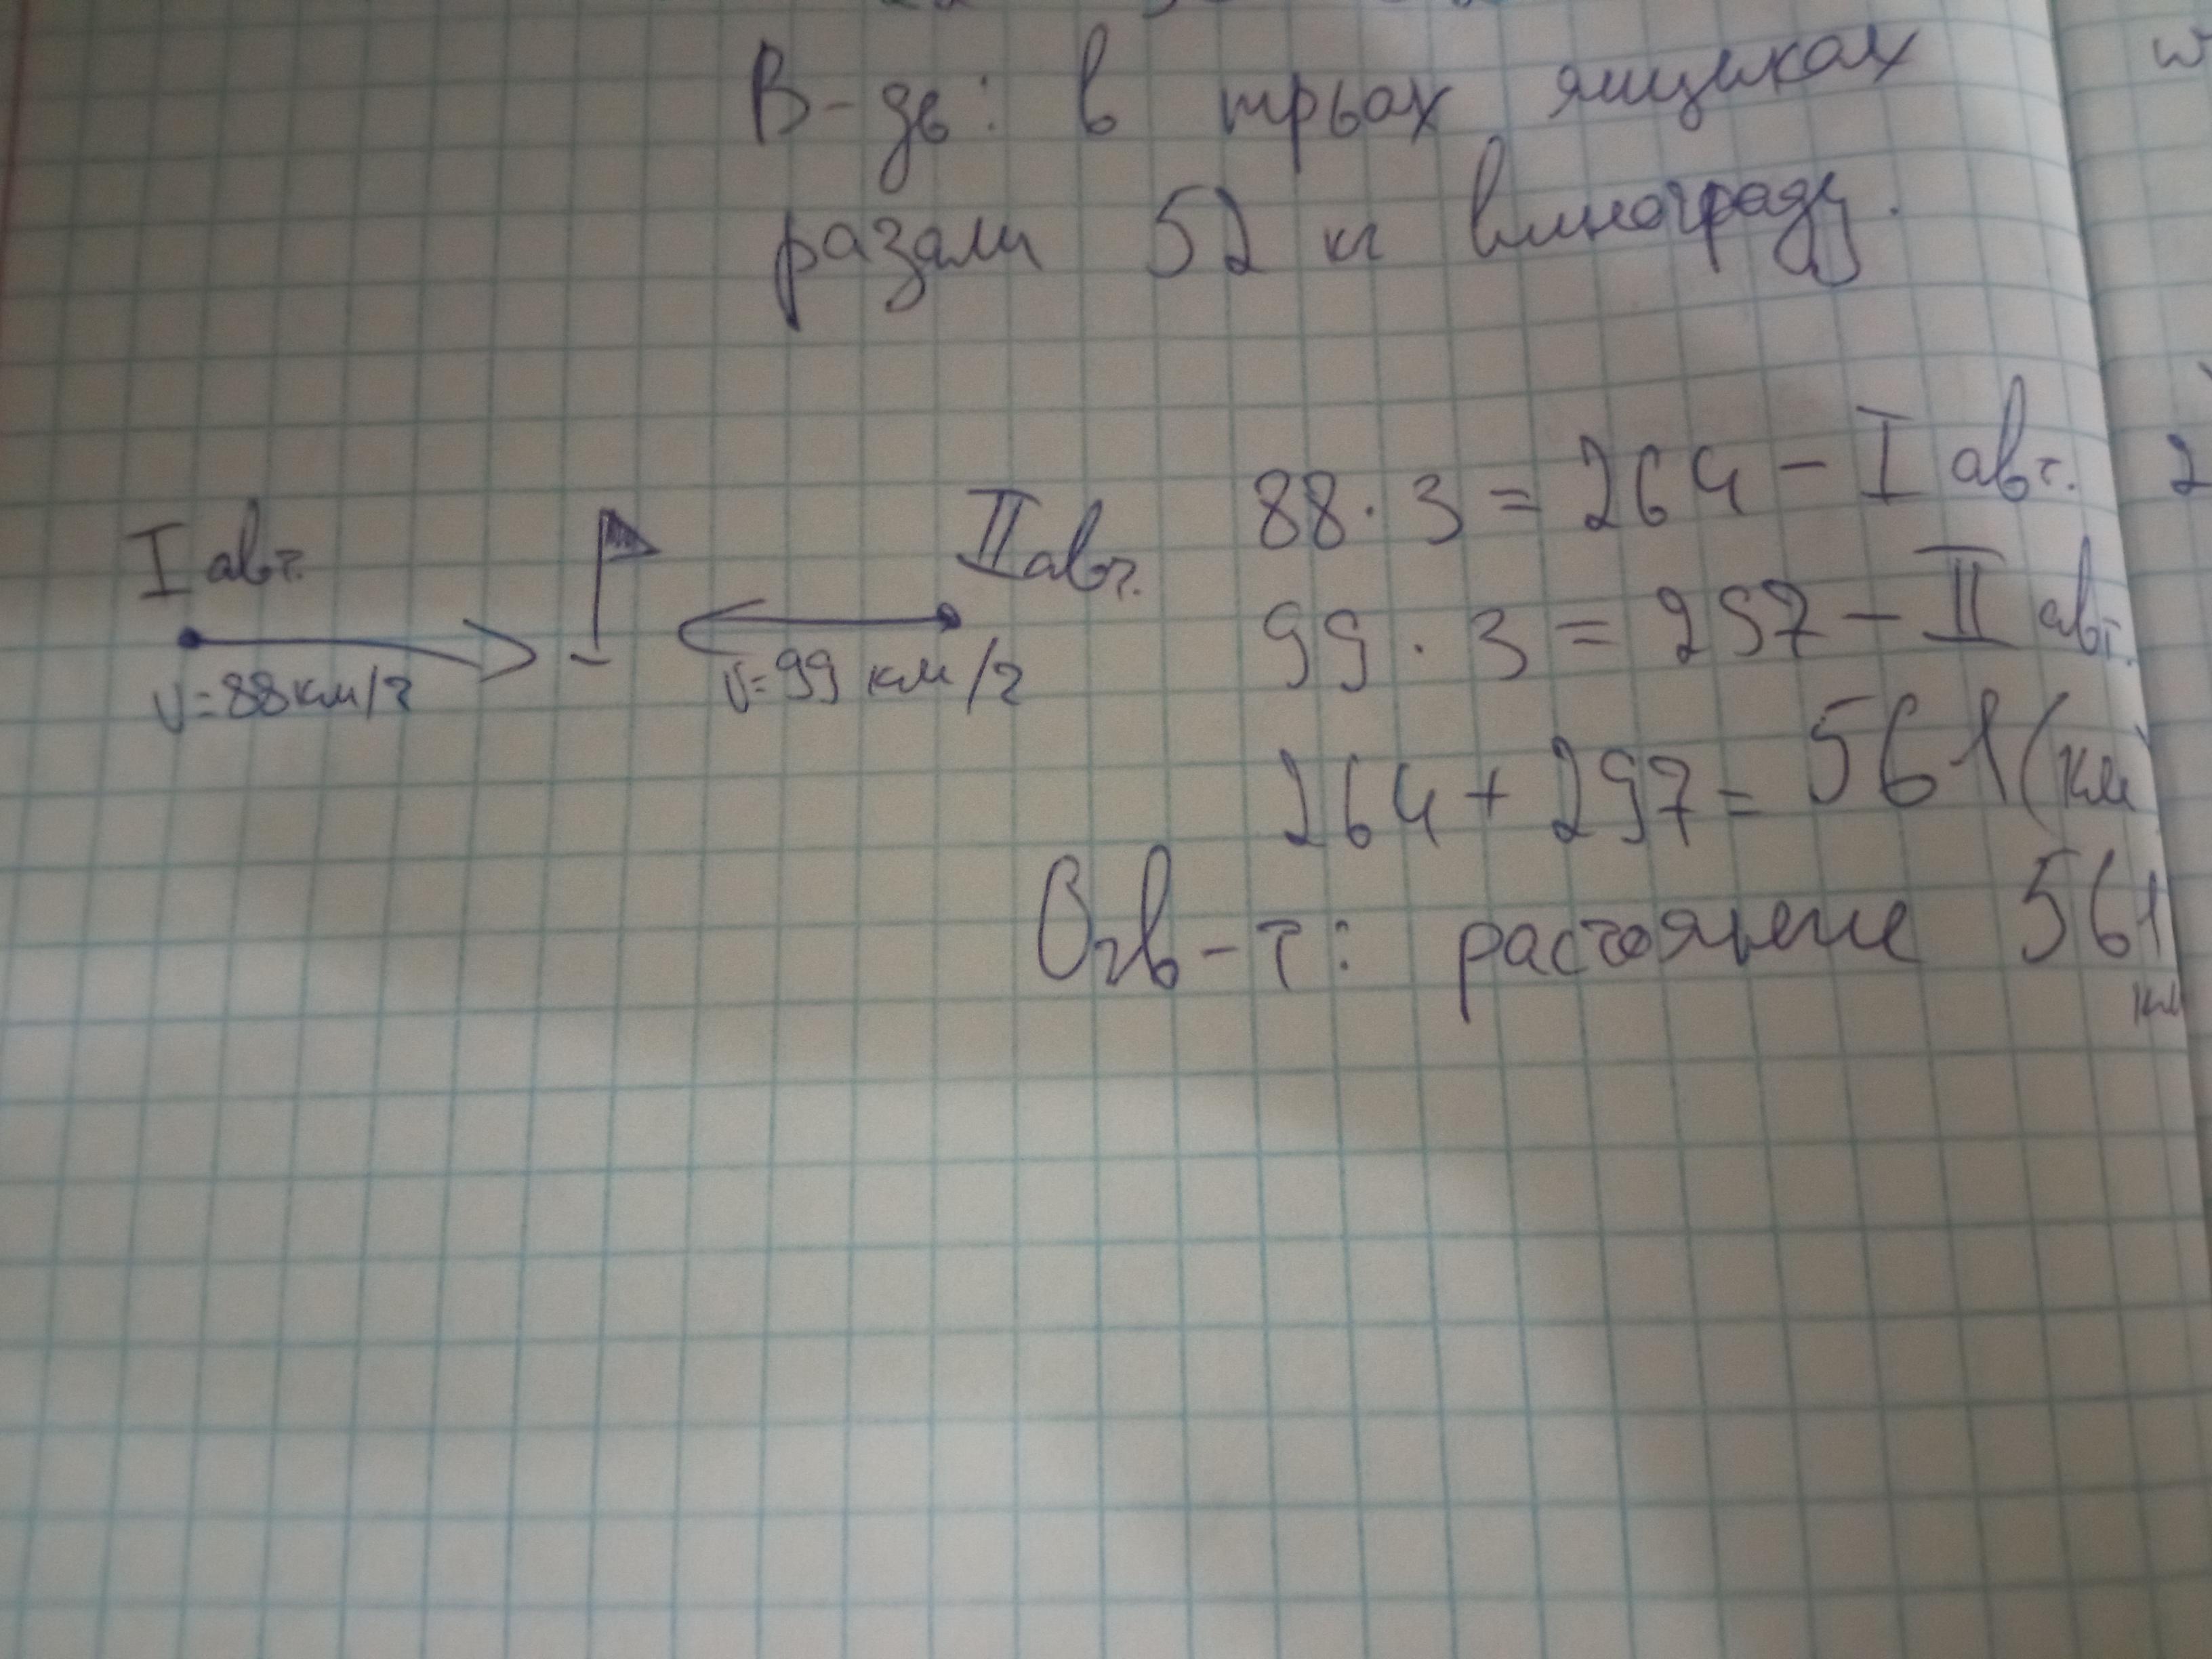 В-дь: в трьох ящиках
разам 52 кг винограду.
I авт.
II авт.
v=88км/г
v=99 км/г
88 · 3 = 264 - I авт.
99 · 3 = 297 - II авт.
264 + 297 = 561 (км)
Отв-т: растояние 561
км